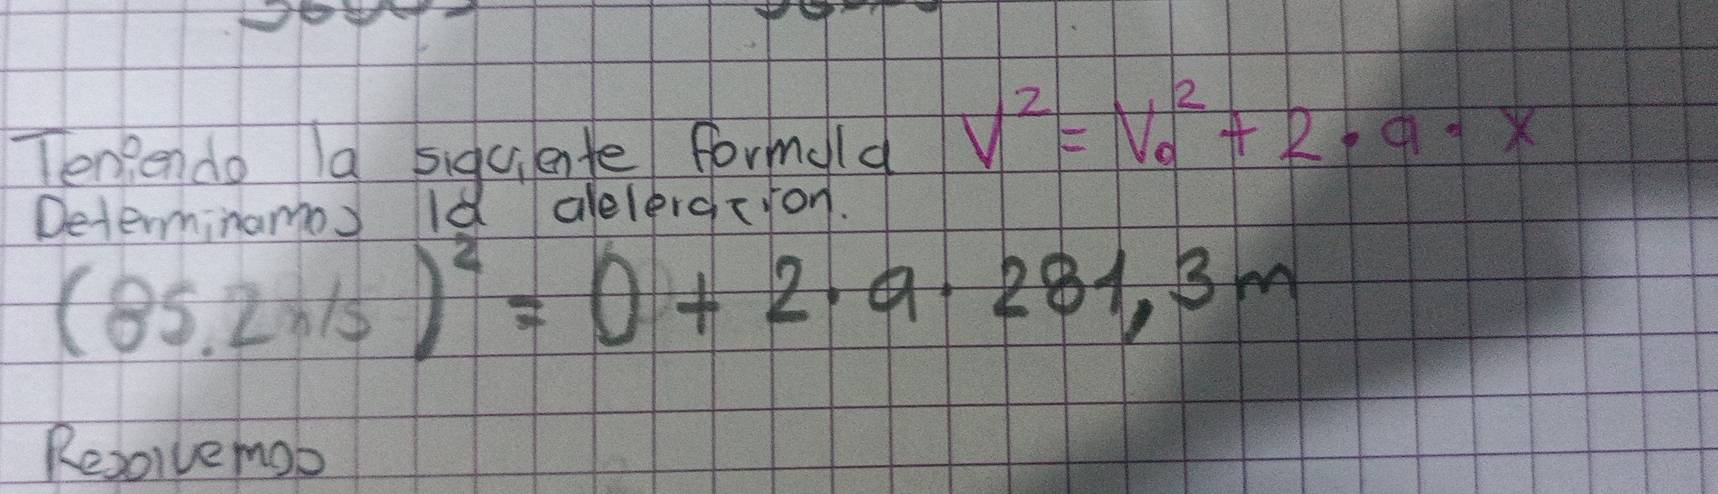 Teniendo la siguiente formula V² = V₀² + 2 · a · x
Determinamos la aleleracion.
(85.2 m/s)² = 0 + 2 · a · 281,3 m
Resolvemos